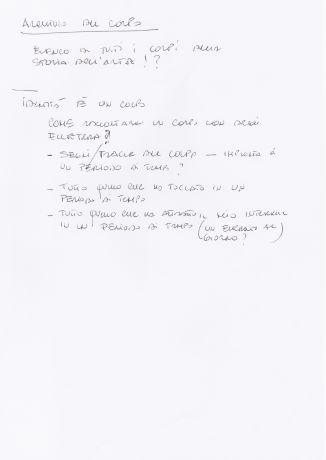 ARCHIVIO DEL CORPO
ELENCO DI TUTTI I CORPI DELLA
STORIA DELL'ARTE!?
IDENTITÀ È UN CORPO
COME RACCONTARE UN CORPO CON
ELETTRA?
- SEGNI/TRACCE DEL CORPO — IMPRONTA
UN PERIODO DI TEMPO?
- TUTTO QUELLO CHE HO TOCCATO IN UN
PERIODO DI TEMPO
- TUTTO QUELLO CHE HA IL MIO
IN UN PERIODO DI TEMPO (UN AL
GIORNO?